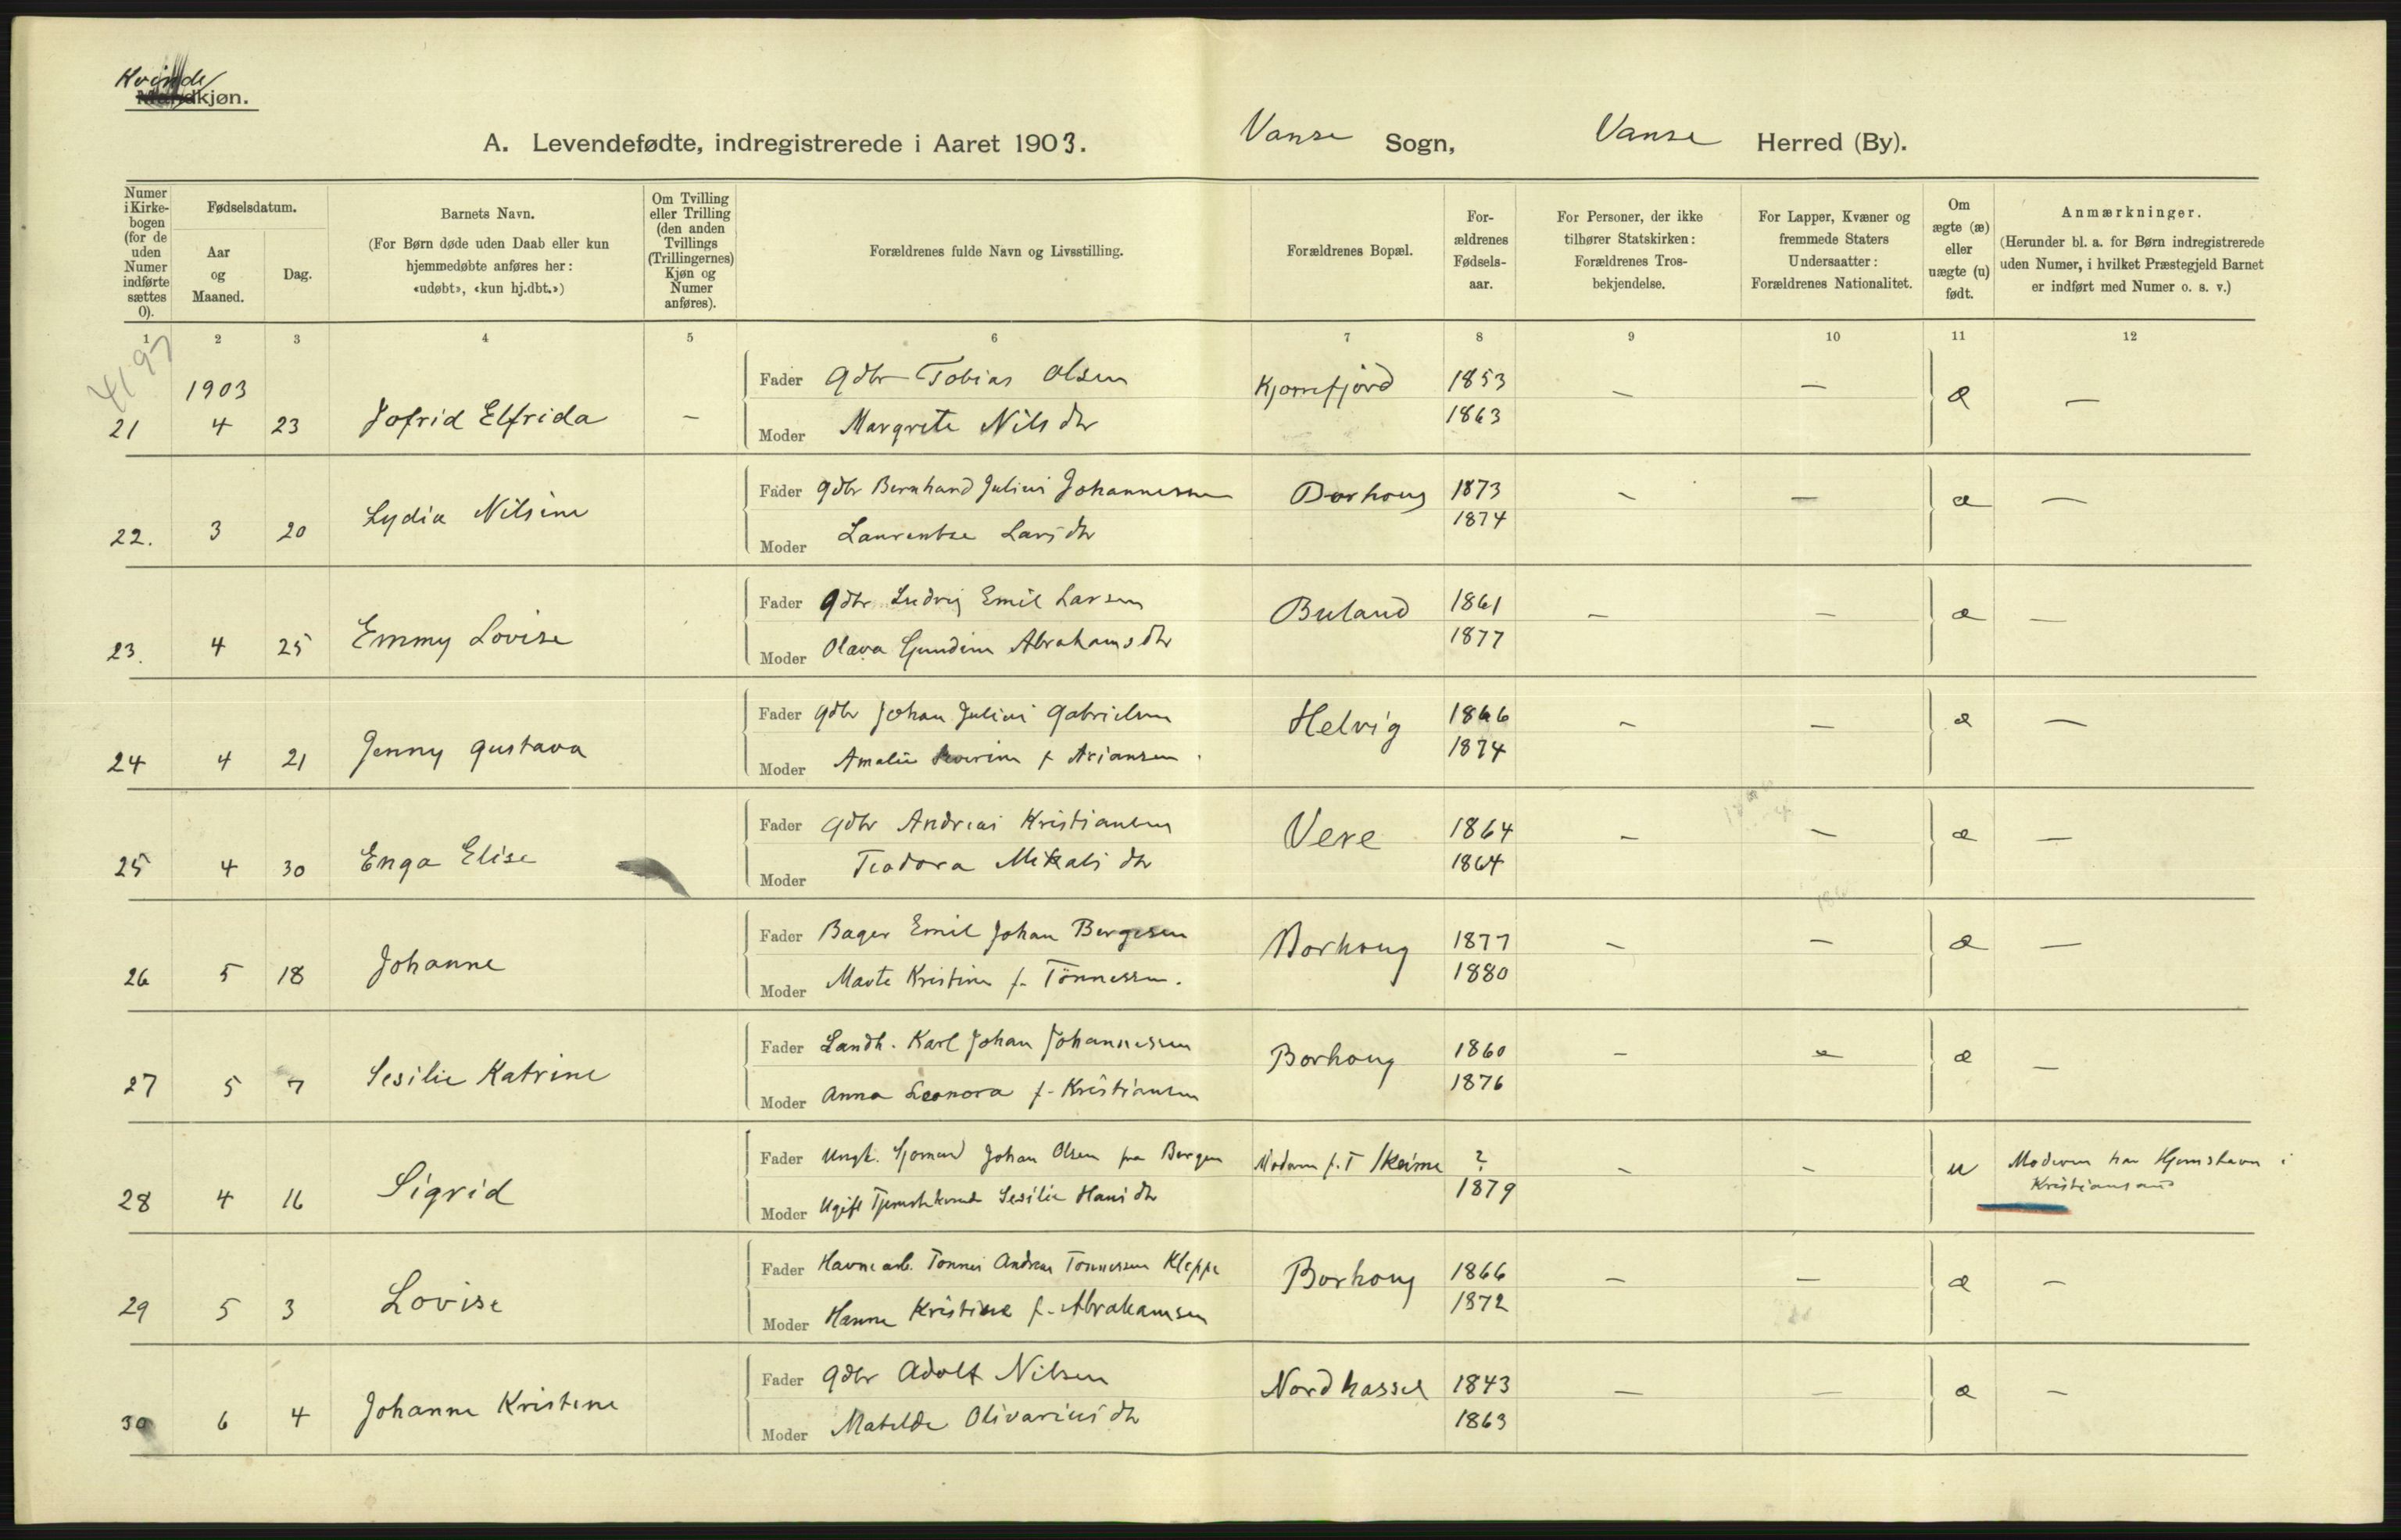 Kvinde
Mandkjøn.
A. Levendefødte, indregistrerede i Aaret 1903. Vanse Sogn, Vanse Herred (By).
Numer i Kirke-bogen (for de uden Numer indførte sættes 0).
Fødselsdatum.
Aar og Maaned.
Dag.
Barnets Navn.
(For Børn døde uden Daab eller kun hjemmedøbte anføres her: «udøbt», «kun hj.dbt.»)
Om Tvilling eller Trilling (den anden Tvillings (Trillingernes) Kjøn og Numer anføres).
Forældrenes fulde Navn og Livsstilling.
Forældrenes Bopæl.
For-ældrenes Fødsels-aar.
For Personer, der ikke tilhører Statskirken: Forældrenes Tros-bekjendelse.
For Lapper, Kvæner og fremmede Staters Undersaatter: Forældrenes Nationalitet.
Om ægte (æ) eller uægte (u) født.
Anmærkninger.
(Herunder bl. a. for Børn indregistrerede uden Numer, i hvilket Præstegjeld Barnet er indført med Numer o. s. v.)
1 2 3 4 5 6 7 8 9 10 11 12
4197
1903
Fader Gdbr Tobias Olsen Kjørrefjord 1853 — — æ —
21 4 23 Jofrid Elfrida — Moder Margrete Nils dtr 1863
Fader Gdbr Bernhard Julius Johannessen Borhoug 1873 — — æ —
22. 3 20 Lydia Nilsine Moder Laurentse Lars dtr 1874
Fader Gdbr Ludvig Emil Larsen Buland 1861 — — æ —
23. 4 25 Emmy Lovise Moder Olava Gundine Abrahams dtr 1877
Fader Gdbr Johan Julius Gabrielsen Helvig 1866 — — æ —
24 4 21 Jenny Gustava Moder Amalie f. Ariansen 1874
Fader Gdbr Andreas Kristiansen Vere 1864 — — æ —
25 4 30 Enga Elise Moder Teodora Mikals dtr 1864
Fader Bager Emil Johan Bergesen Borhoug 1877 — — æ —
26 5 18 Johanne Moder Marte Kristine f. Tönnessen. 1880
Fader Landh. Karl Johan Johannesen Borhoug 1860 — — æ —
27 5 7 Sesilie Katrine Moder Anna Leonora f. Kristiansen 1876
Fader Ungk. Sjømand Johan Olsen fra Bergen Moderen f. T Skeime ? — — u Moderen har Hjemstavn i
Kristiansand
28 4 16 Sigrid Moder Ugift Tjenestekvinde Sesilie Hans dtr 1879
Fader Havnearb. Tonnes Andreas Tonnessen Kleppe Borhoug 1866 — — æ —
29 5 3 Lovise Moder Hanne Kristine f. Abrahamsen 1872
Fader Gdbr Adolf Nilsen Nordhassel 1843 — — æ —
30 6 4 Johanne Kristine Moder Matilde Olivarius dtr 1863